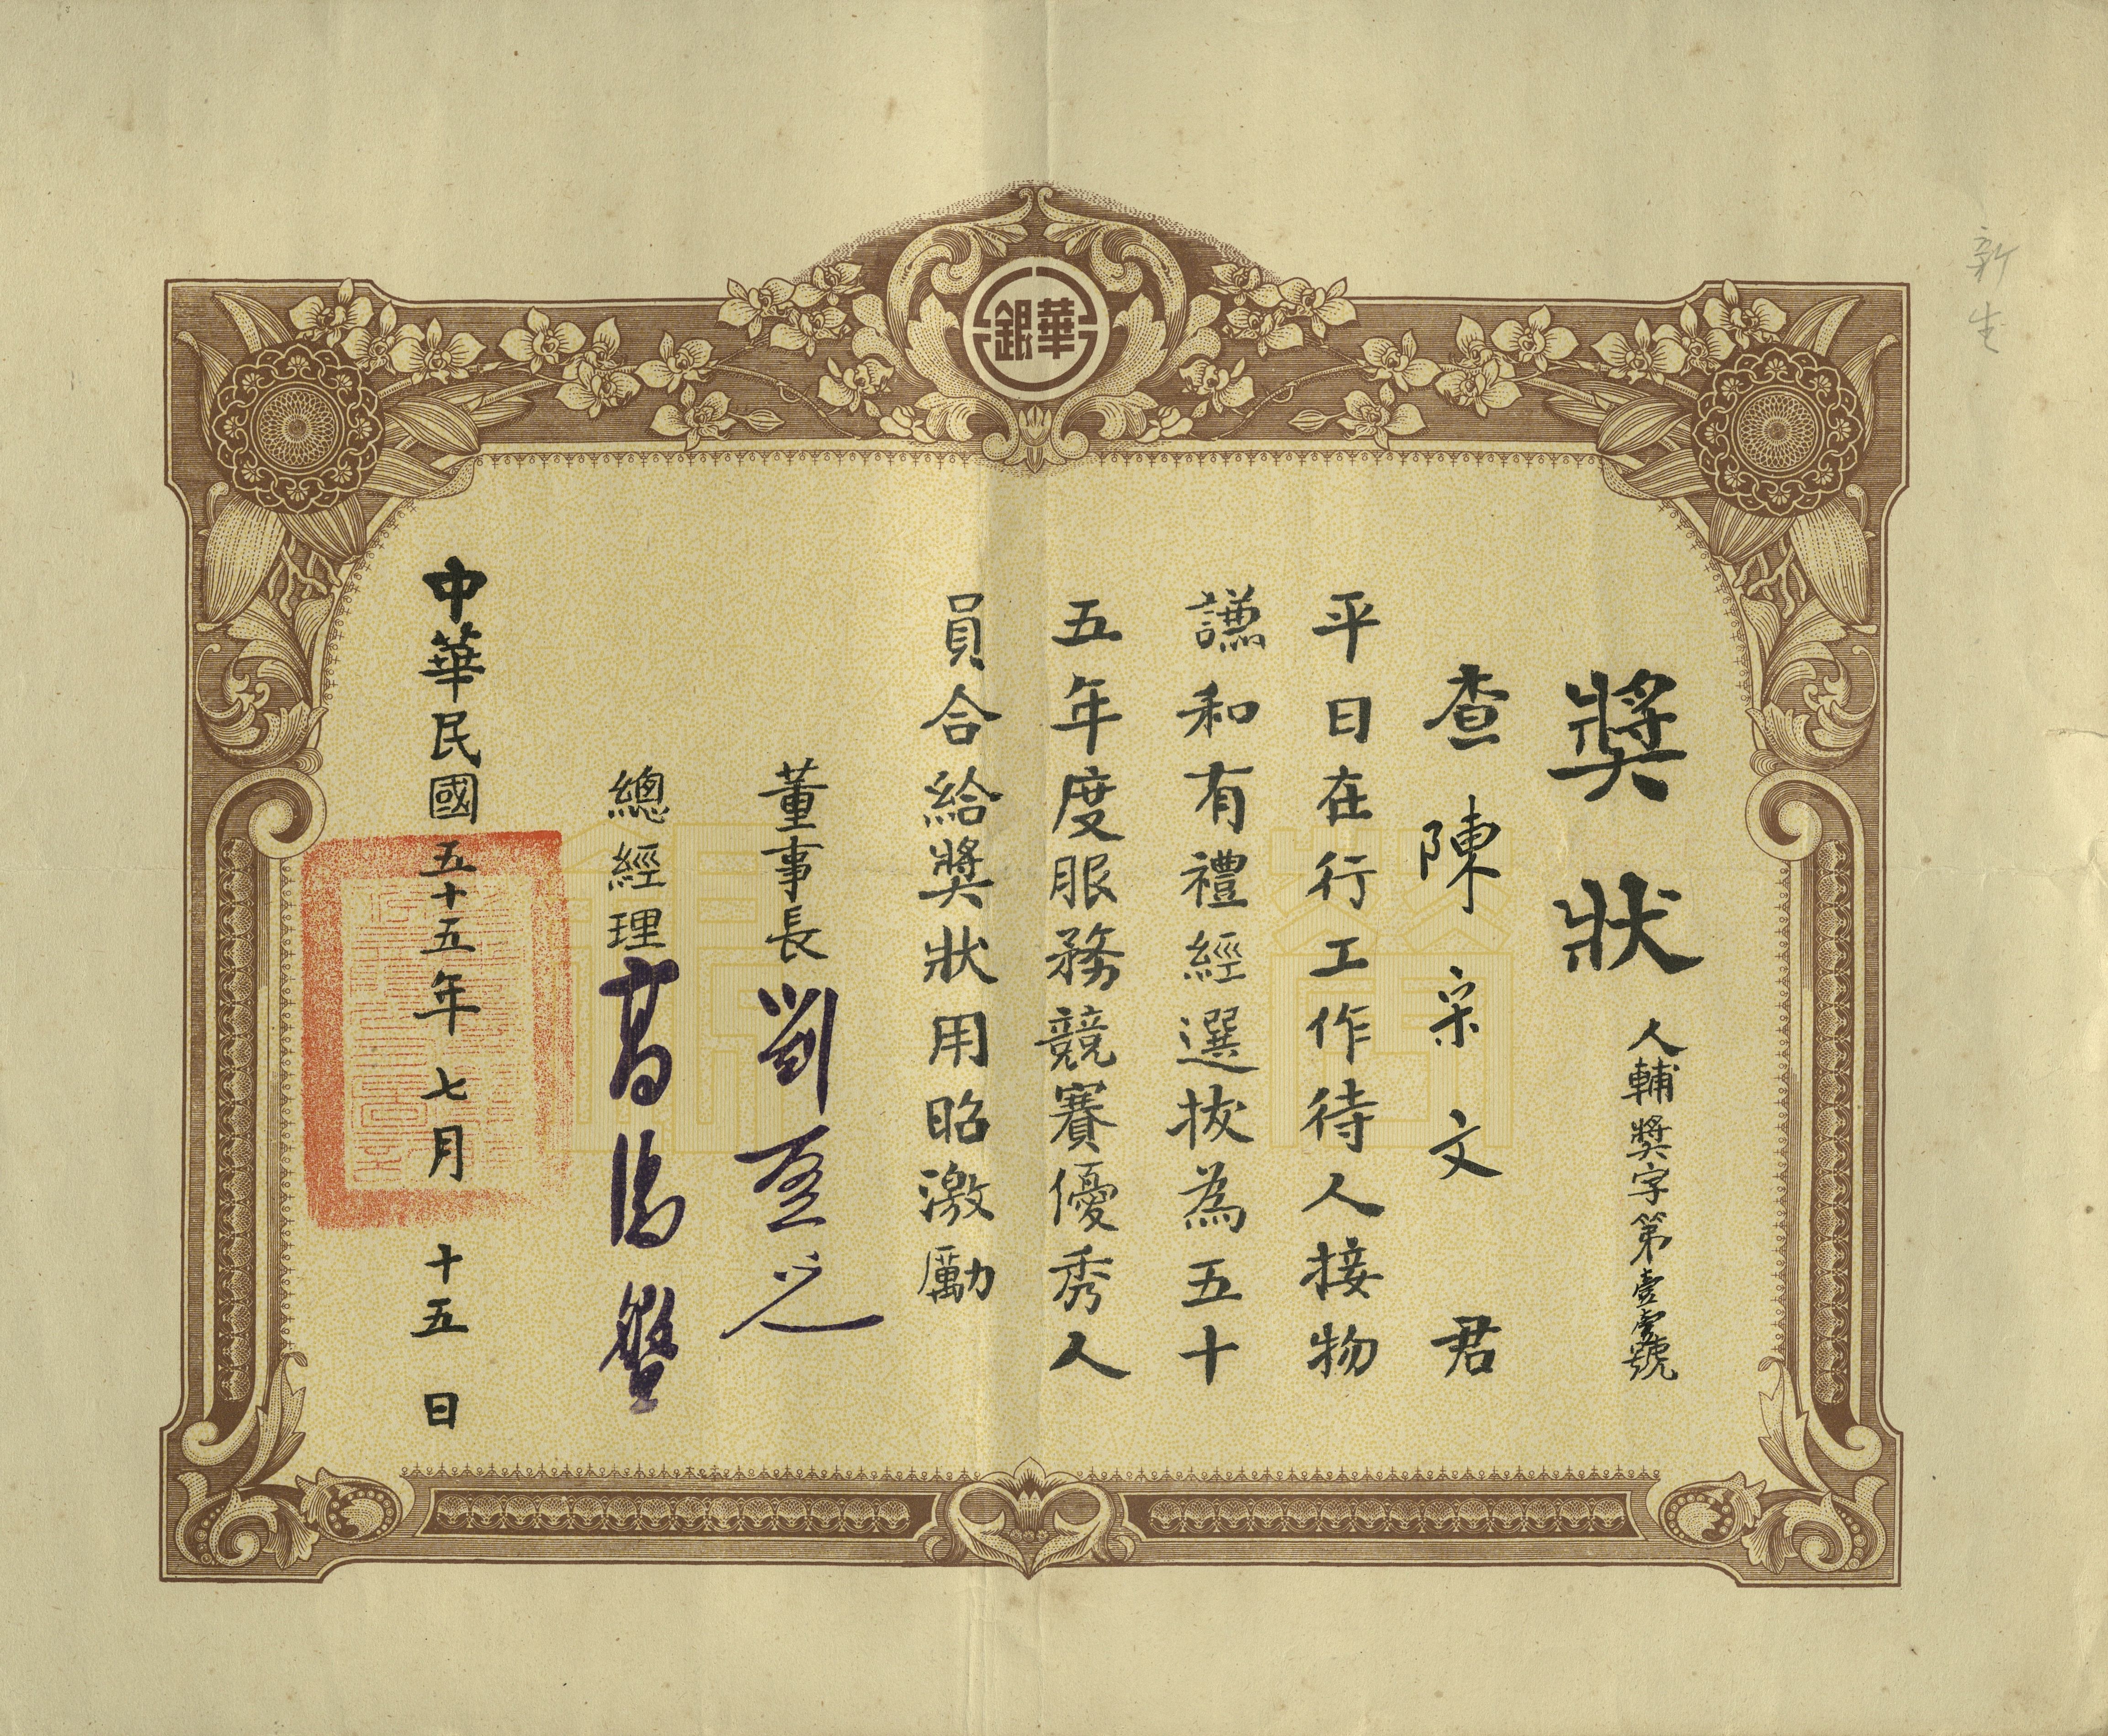 華銀
新生
獎狀
人輔獎字第壹壹號
查陳宗文君
平日在行工作待人接物
謙和有禮經選拔為五十
五年度服務競賽優秀人
員合給獎狀用昭激勵
董事長劉啓光
總經理高湯盤
中華民國五十五年七月十五日